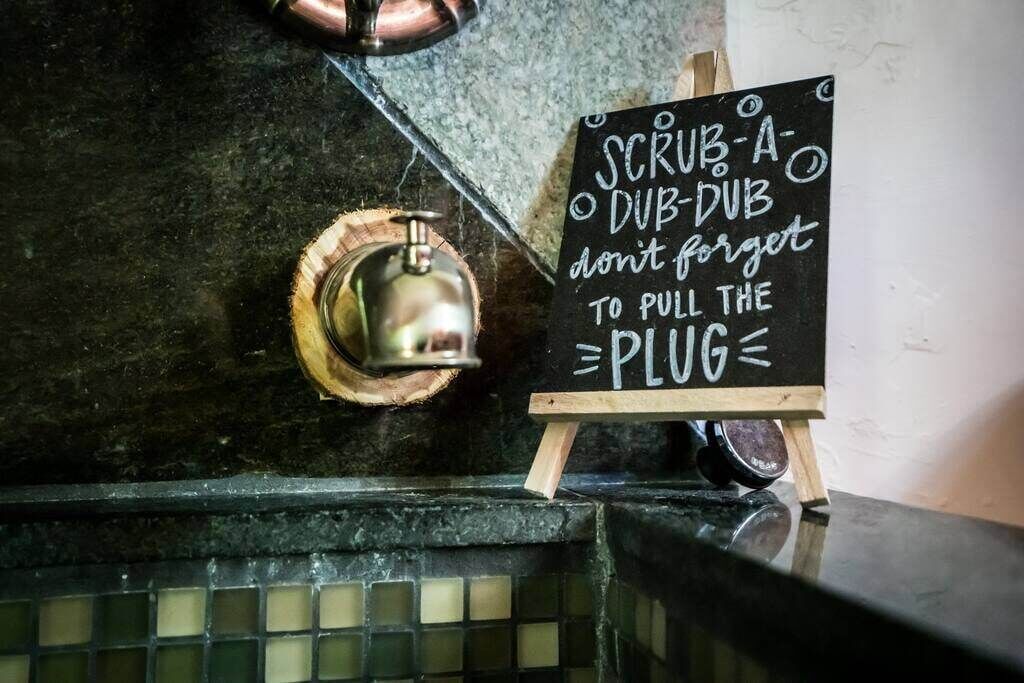 SCRUB-A-
DUB-DUB
don't forget
TO PULL THE
PLUG